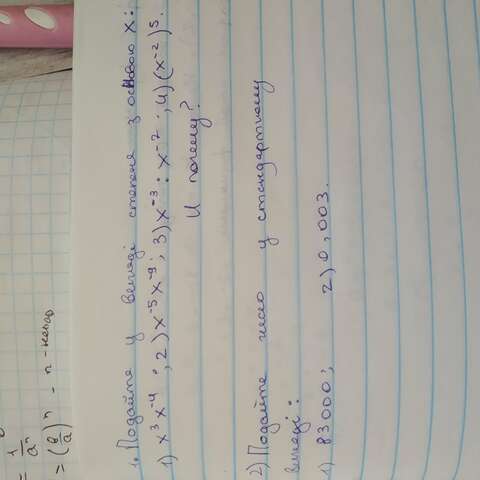 = 1/aⁿ
= (в/a)ⁿ - n - непар
1. Подайте у вигляді степеня з основою x:
1) x³x⁻⁴; 2) x⁻⁵x⁻⁹; 3) x⁻³ : x⁻⁷; 4) (x⁻²)⁵.
И почему?
2) Подайте число у стандартному
вигляді:
1) 83000; 2) 0,003.